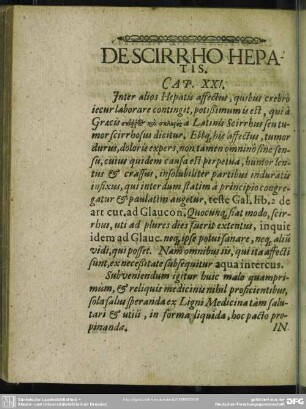 DE SCIRRHO HEPA-
TIS.
CAP. XXI.
Inter alios Hepatis affectus, quibus crebrò
iecur laborare contingit, potissimum is est, qui à
Græcis à Latinis Scirrhus seu tu-
mor scirrhosus dicitur. Estq; hic affectus, tumor
durus, doloris expers, non tamen omninò sine sen-
su, cuius quidem causa est perpetua, humor len-
tus & crassus, insolubiliter partibus induratis
infixus, qui interdum statim à principio congre-
gatur & paulatim augetur, teste Gal. lib. 2 de
art cur, ad Glaucon. Quocunq; fiat modo, scir-
rhus, uti ad plures dies fuerit extentus, inquit
idem ad Glauc. neq; ipse potui sanare, neq; aliũ
vidi, qui posset. Nam omnibus iis, qui ita affecti
sunt, ex necessitate subsequitur aqua intercus.
Subveniendum igitur huic malo quampri-
mùm, & reliquis medicinis nihil proficientibus,
sola salus speranda ex Ligni Medicina tàm salu-
tari & utili, in forma liquida, hoc pacto pro-
pinanda.
IN